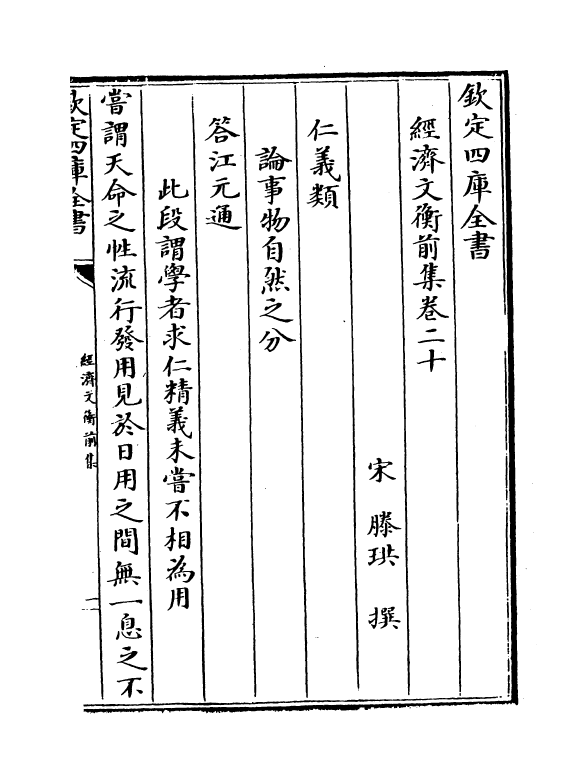 欽定四庫全書
經濟文衡前集卷二十
宋　滕珙　撰
仁義類
論事物自然之分
答江元適
此段謂學者求仁精義未嘗不相為用
嘗謂天命之性流行發用見於日用之間無一息之不
欽定四庫全書
經濟文衡前集
一